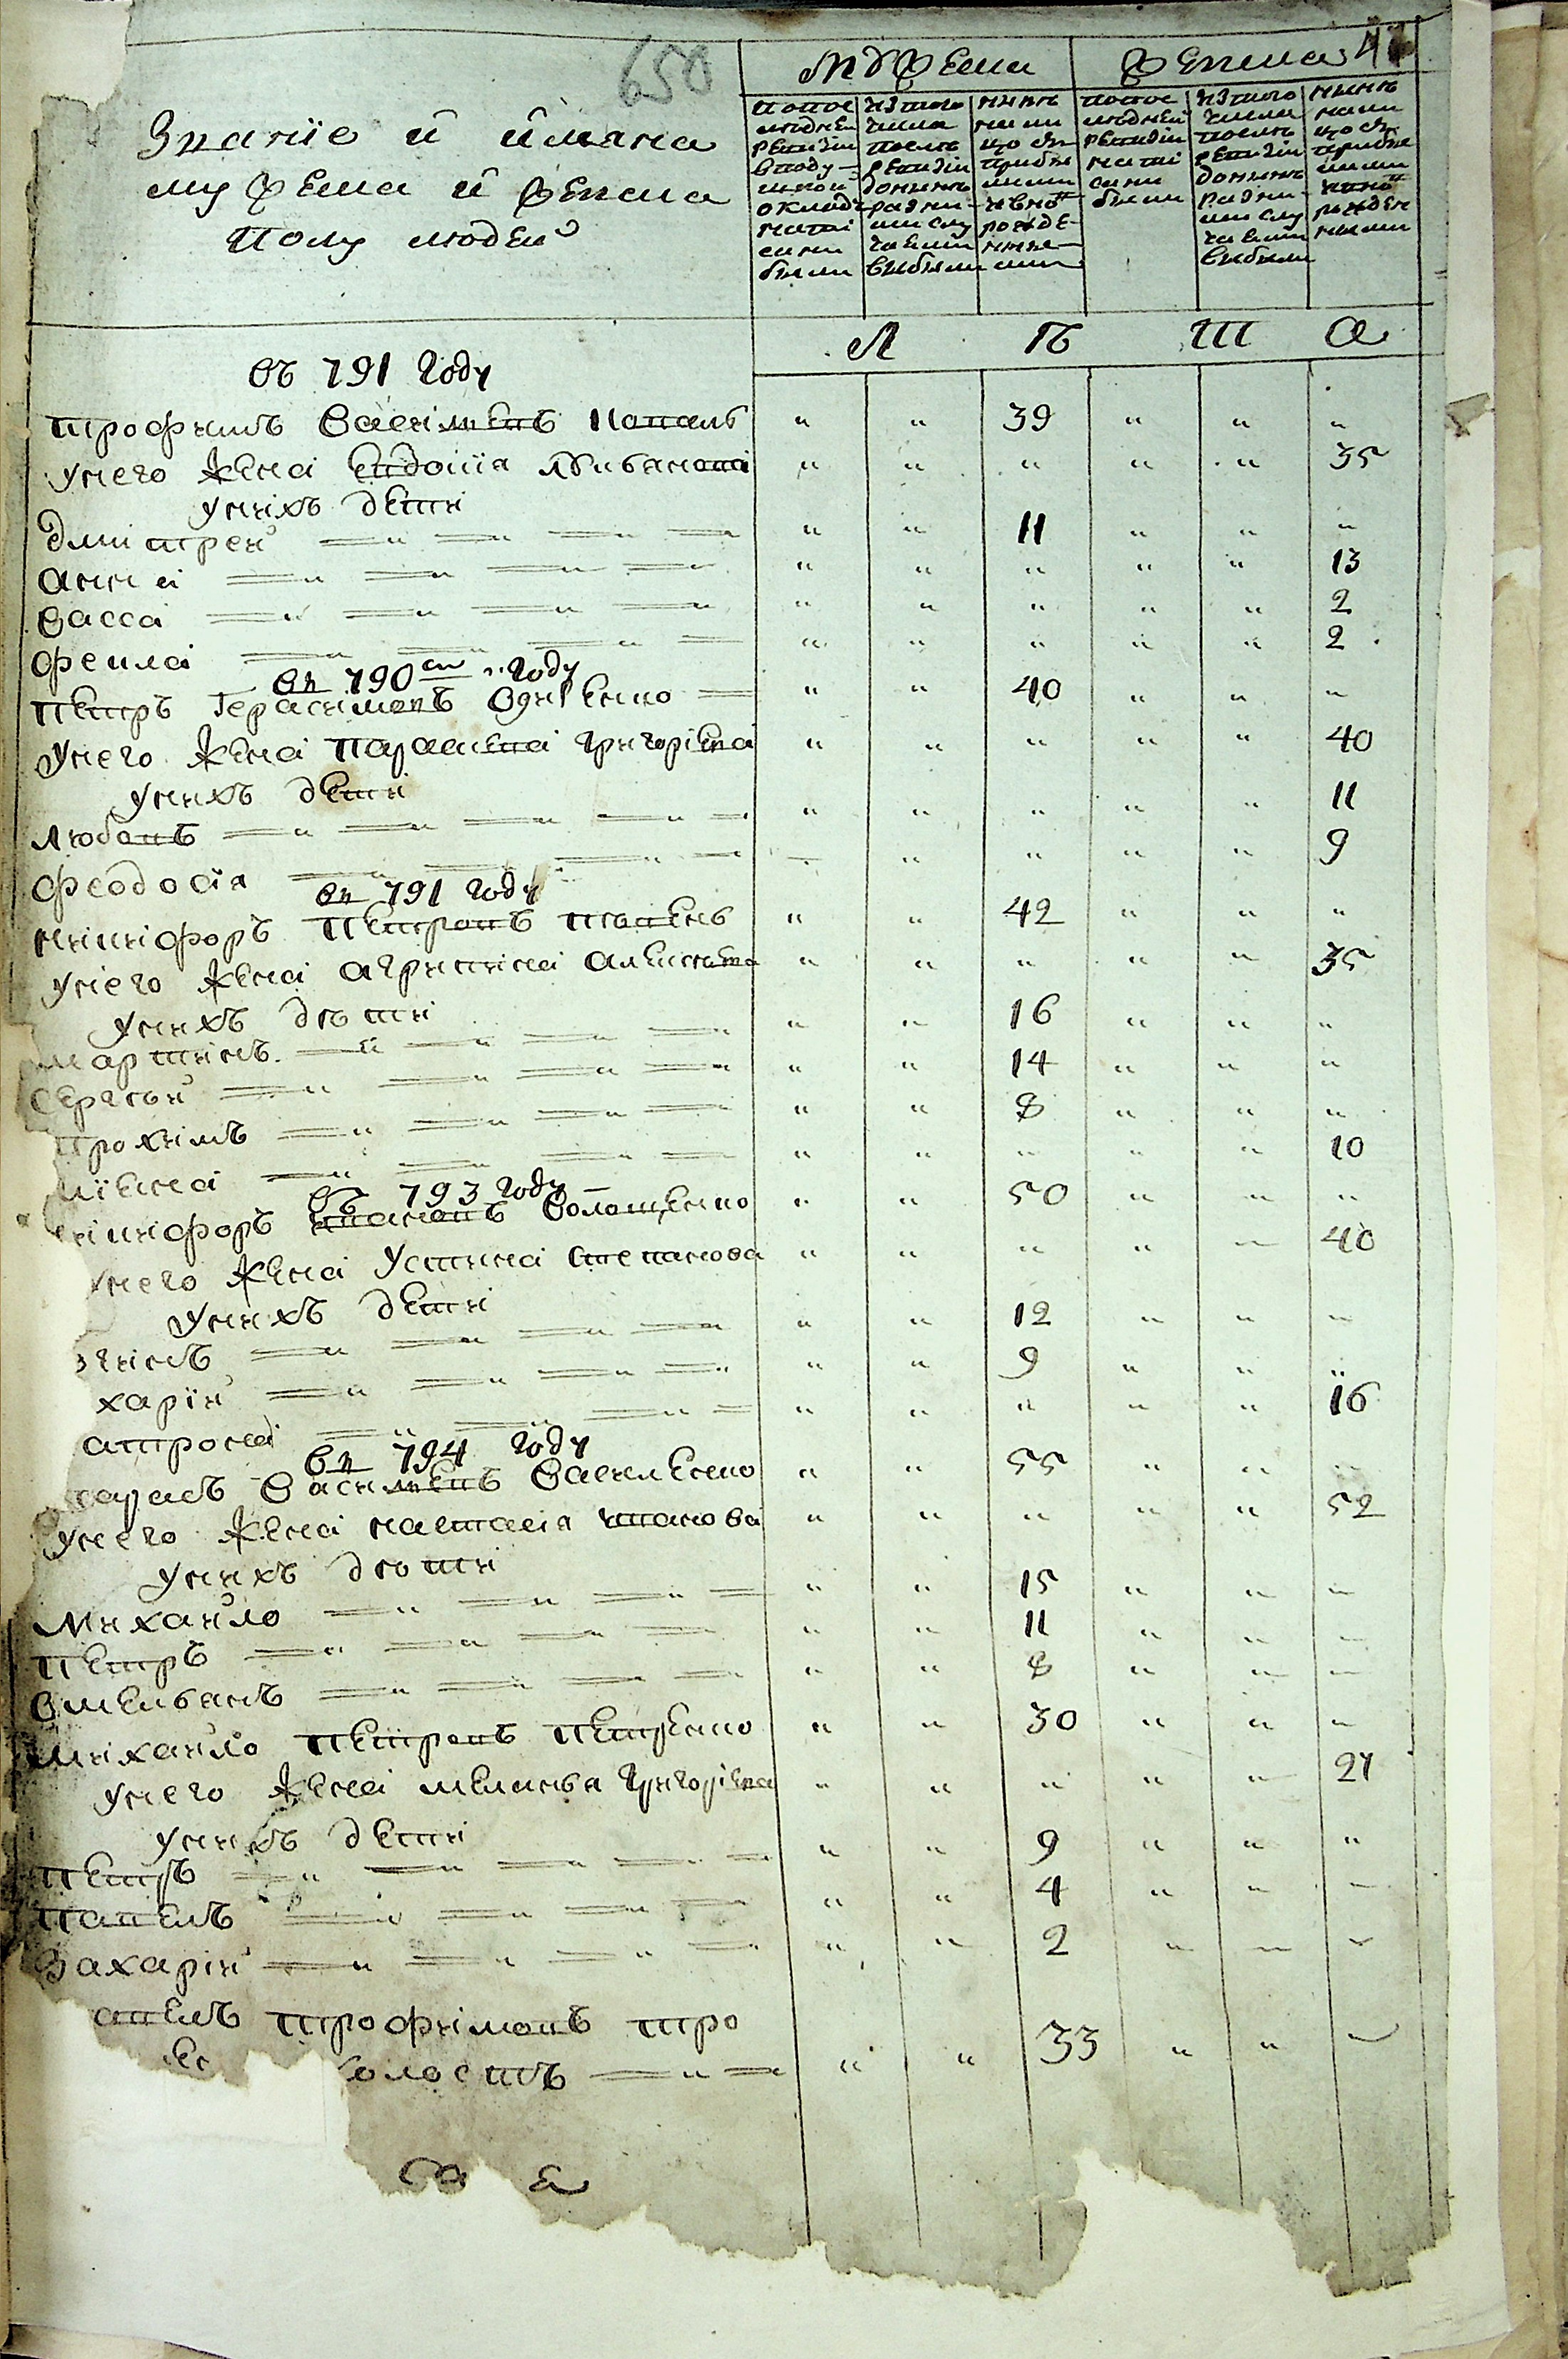 650
47
Званіе и имяна
мужеска и женска
полу людей
Мужеска
Женска
попос
людней
ревизіи
вподу
шной
окладъ
написа
сани
были
изтого
числа
после
ревизіи
донынъ
разны
ми слу
чаями
выбыли
нынъ
на ли
цо съ
прибы
лыми
и вно
рожде
нны
ми
попос
людней
ревизіи
напи
сани
были
изтого
числа
после
ревизіи
донынъ
разны
ми слу
чаями
выбыли
нынъ
на ли
цо съ
прибы
лыми
и вно
рожден
ными
Л Ѣ Т А
въ 791 году
Трофимъ Васильевъ Коваль " " 39 " " "
унего жена Евдокія Иванова " " " " " 35
унихъ дети
Дмитрей " " 11 " " "
Анна " " " " " 13
Васса " " " " " 2
Фекла " " " " " 2
въ 790м году
Петръ Герасимовъ Одиненко " " 40 " " "
унего жена Параскева Григоріева " " " " " 40
унихъ дети
Любовъ " " " " " 11
Феодосія " " " " " 9
въ 791 году
Никифоръ Петровъ " " 42 " " "
унего жена Агрипина Алексеева " " " " " 35
унихъ дѣти
Мартинъ " " 16 " " "
Сергей " " 14 " " "
Трохимъ " " 8 " " "
" " " " " 10
въ 793 году
никифоръ Ивановъ Волощенко " " 50 " " "
унего жена Устина Степанова " " " " " 40
унихъ дети
" " 12 " " "
харій " " 9 " " "
атрона " " " " " 16
въ 794 году
тарасъ Васильевъ Василенко " " 55 " " "
унего жена Наталія Иванова " " " " " 52
унихъ дѣти
Михайло " " 15 " " "
Петръ " " 11 " " "
Омельянъ " " 8 " " "
Михайло Петровъ Петренко " " 30 " " "
унего жена Меланья Григоріева " " " " " 27
унихъ дети
Петръ " " 9 " " "
Павелъ " " 4 " " "
Захарій " " 2 " " "
авелъ Трофимовъ тро
холостъ " " 33 " " "